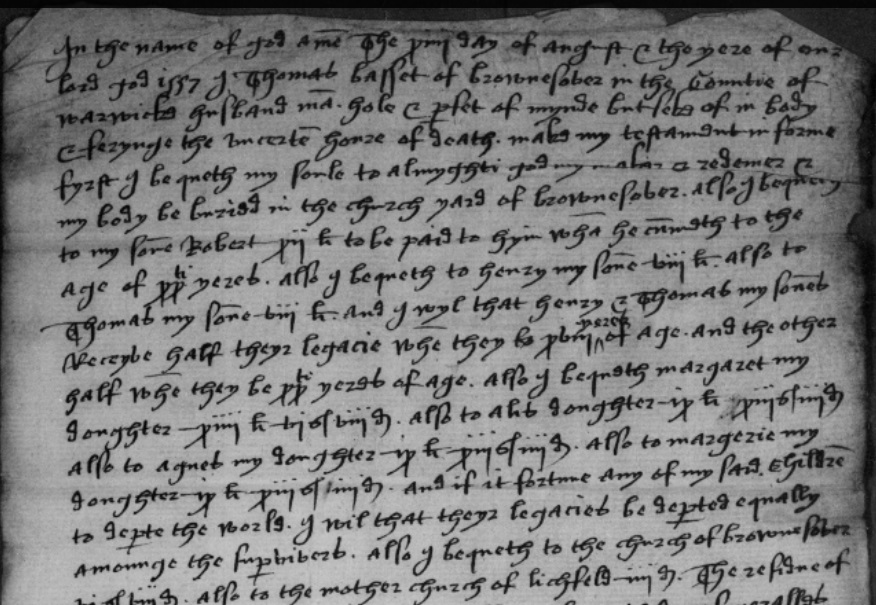 In the name of god amē The xiiii day of august & the yere of our
lord god 1557 I Thomas basset of brownesover in the Countie of
warwicke husband mā. hole & pfet of mynde but seke of in body
& ferynge the uncertē houre of death. make my testament in forme
fyrst I be queth my soule to almyghti god my maker & redemer &
my body be buried in the church yard of brownesover. also I bequeth
to my sōne Robert xii li to be paid to hym whā he cūmeth to the
age of xxti yeres. also I bequeth to henry my sōne viii li. also to
Thomas my sōne viii li. and I wyl that henry & Thomas my sōnes
Receyve half theyr legacie whē they be xviii yeres of age. and the other
half whē they be xxti yeres of age. also I bequeth margaret my
doughter xiiii li vi s viii d. also to doughter ix li xiii s iiii d
also to agnes my doughter ix li xiii s iiii d. also to margerie my
doughter ix li xiii s iiii d. and if it fortune any of my said Childrē
to depte the world. I wil that theyr legacies be depted equally
amounge the survivers. also I bequeth to the church of brownesover
also to the mother church of lichfeld iiii d. The residue of